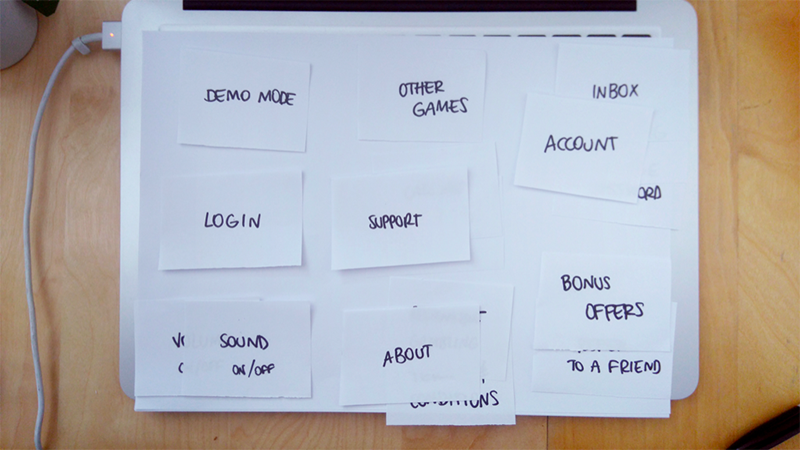 DEMO MODE
OTHER
GAMES
INBOX
ACCOUNT
LOGIN
SUPPORT
BONUS
OFFERS
SOUND
ON/OFF
ABOUT
TO A FRIEND
CONDITIONS